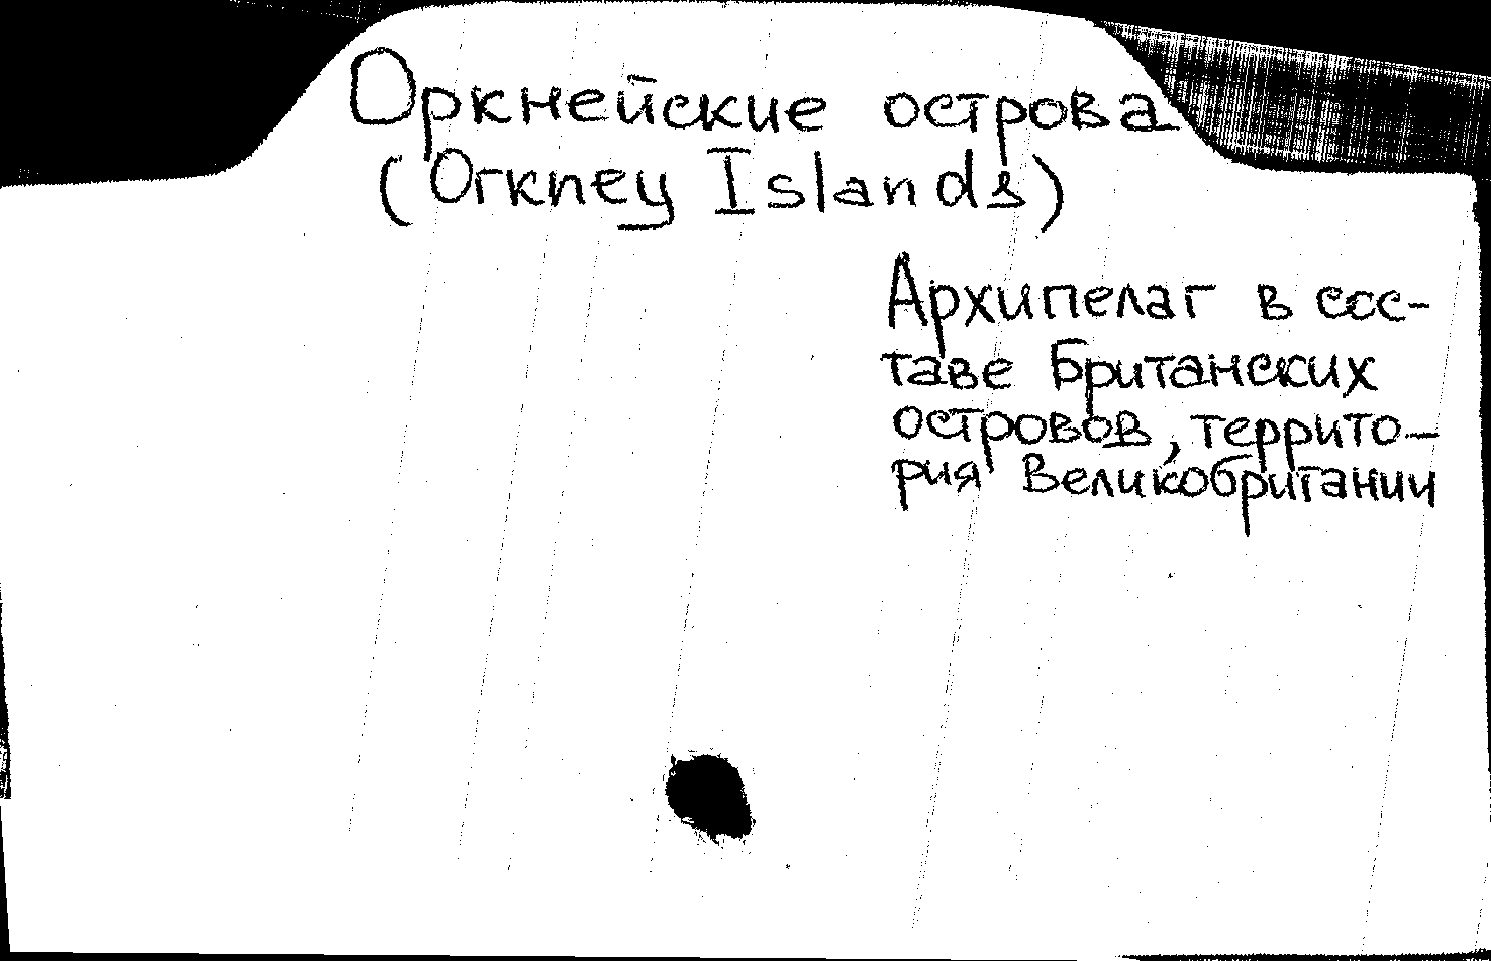 Оркнейские острова
(Orkney Islands)
Архипелаг в сос-
таве Британских
островов, террито-
рия Великобритании